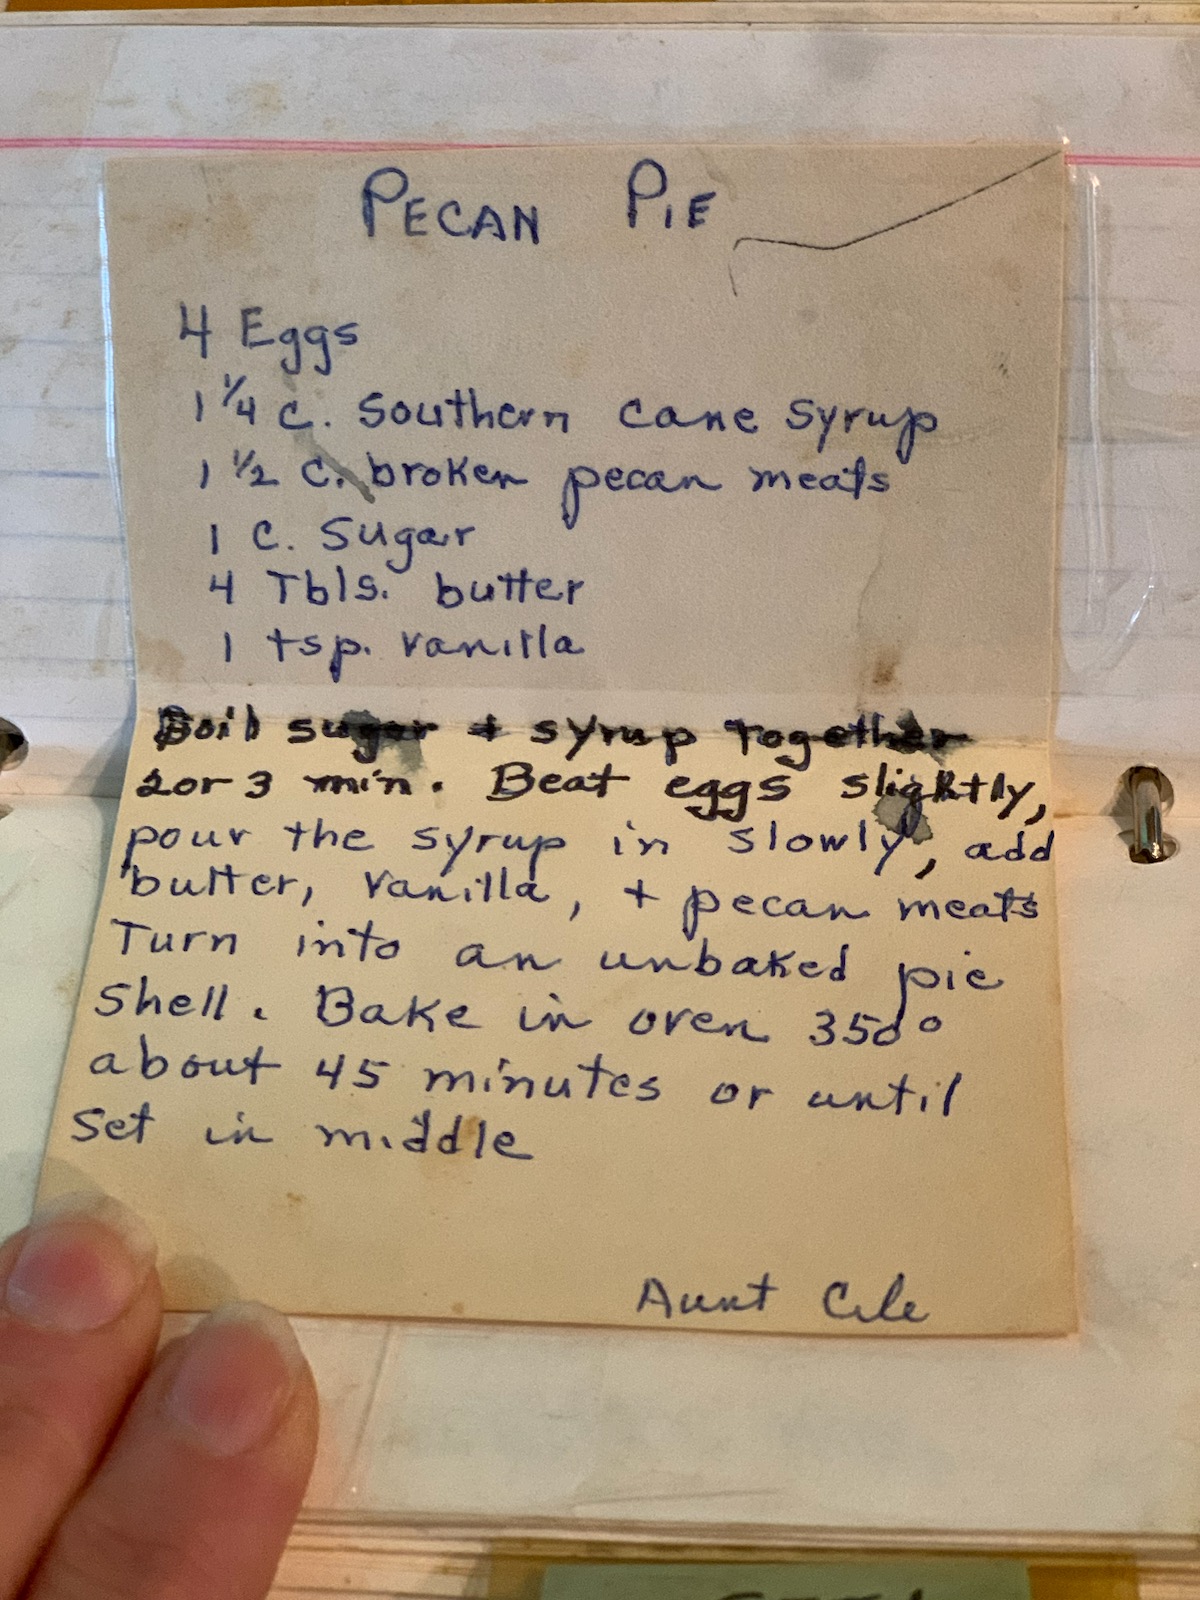 PECAN PIE
4 Eggs
1 1/4 c. Southern cane syrup
1 1/2 c. broken pecan meats
1 c. sugar
4 Tbls. butter
1 tsp. vanilla
Boil sugar + syrup together
2 or 3 min. Beat eggs slightly,
pour the syrup in slowly, add
butter, vanilla, + pecan meats
Turn into an unbaked pie
shell. Bake in oven 350°
about 45 minutes or until
set in middle
Aunt Cile